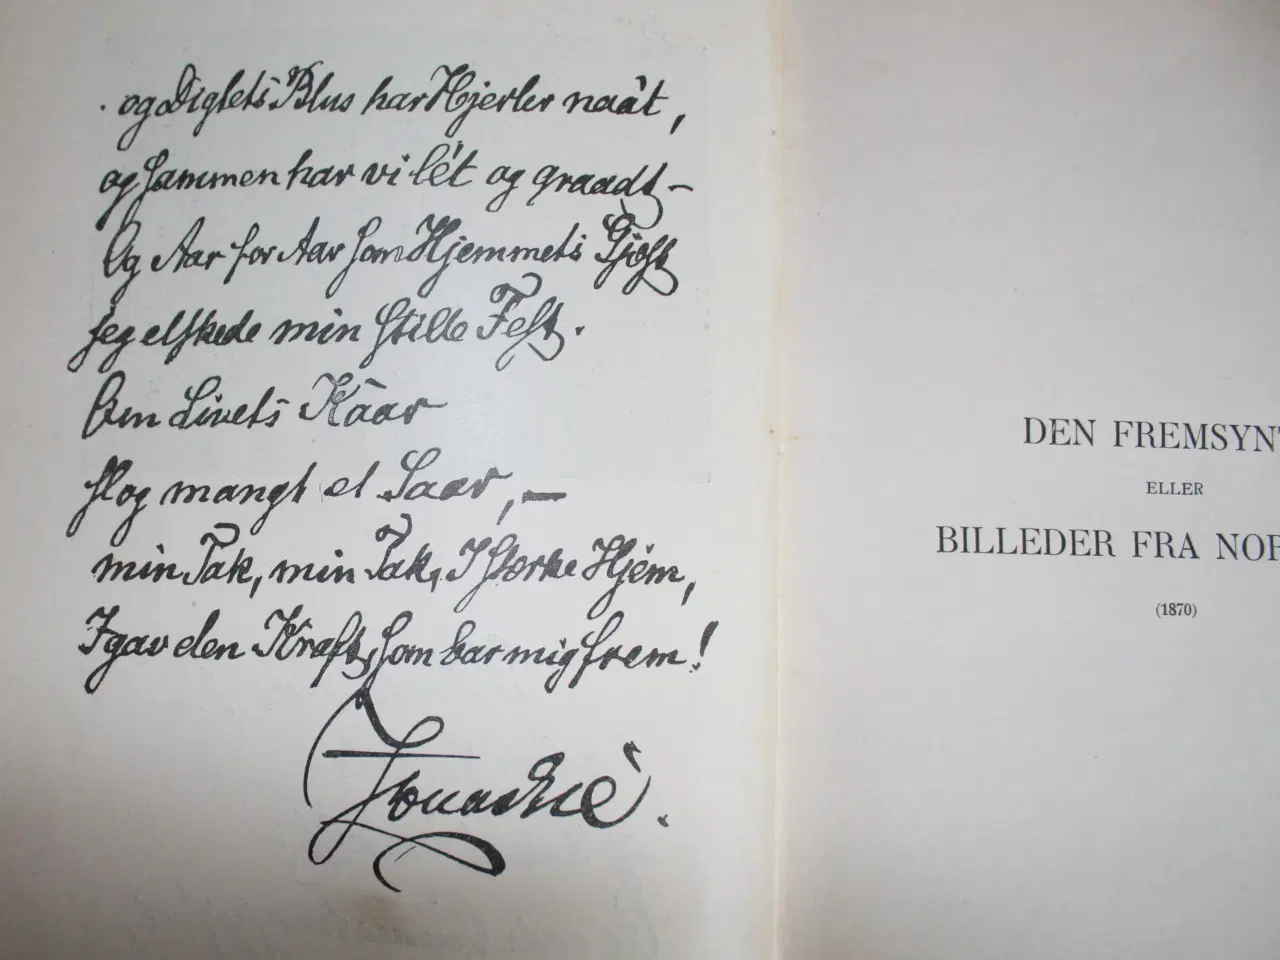 og Digtets Blus har Hjerter naät,
og sammen har vi lét og graadt –
Og Aar for Aar som Hjemmets Gjest
jeg elskede min stille Fest.
Om Livets Kaar
slog mangt et Saar, –
min Tak, min Tak, I stærke Hjem,
I gav den Kraft, som bar mig frem!
Jonas Lie.
DEN FREMSYN
ELLER
BILLEDER FRA NOR
(1870)